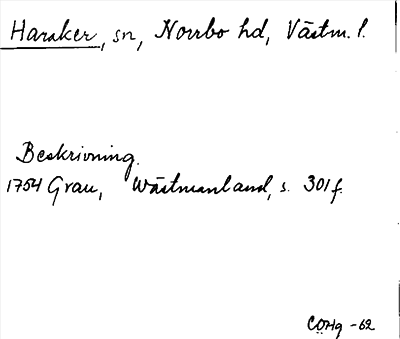 Haraker, sn, Norrbo hd, Västm. l.
Beskrivning.
1754 Grau, Wästmanland, s. 301 f.
COHg -62